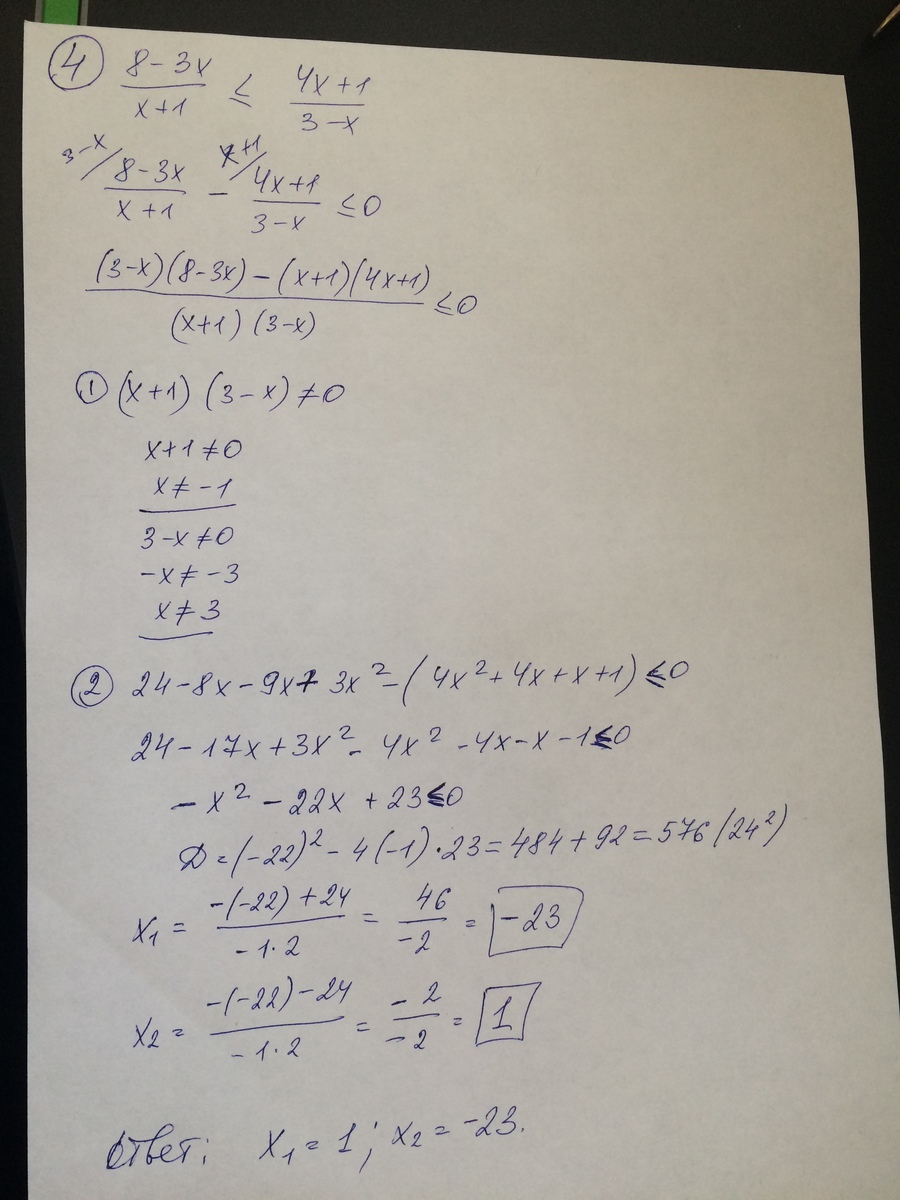 ④ (8-3x)/(x+1) ≤ (4x+1)/(3-x)
3-x/ (8-3x)/(x+1) - x+1/ (4x+1)/(3-x) ≤0
((3-x)(8-3x)-(x+1)(4x+1))/((x+1)(3-x)) ≤0
① (x+1)(3-x)≠0
x+1≠0
x≠-1
3-x≠0
-x≠-3
x≠3
② 24-8x-9x+3x²-(4x²+4x+x+1)≤0
24-17x+3x²-4x²-4x-x-1≤0
-x²-22x+23≤0
D=(-22)²-4(-1)·23=484+92=576(24²)
x₁ = (-(-22)+24)/(-1·2) = 46/(-2) = -23
x₂ = (-(-22)-24)/(-1·2) = (-2)/(-2) = 1
Ответ: x₁=1; x₂=-23.